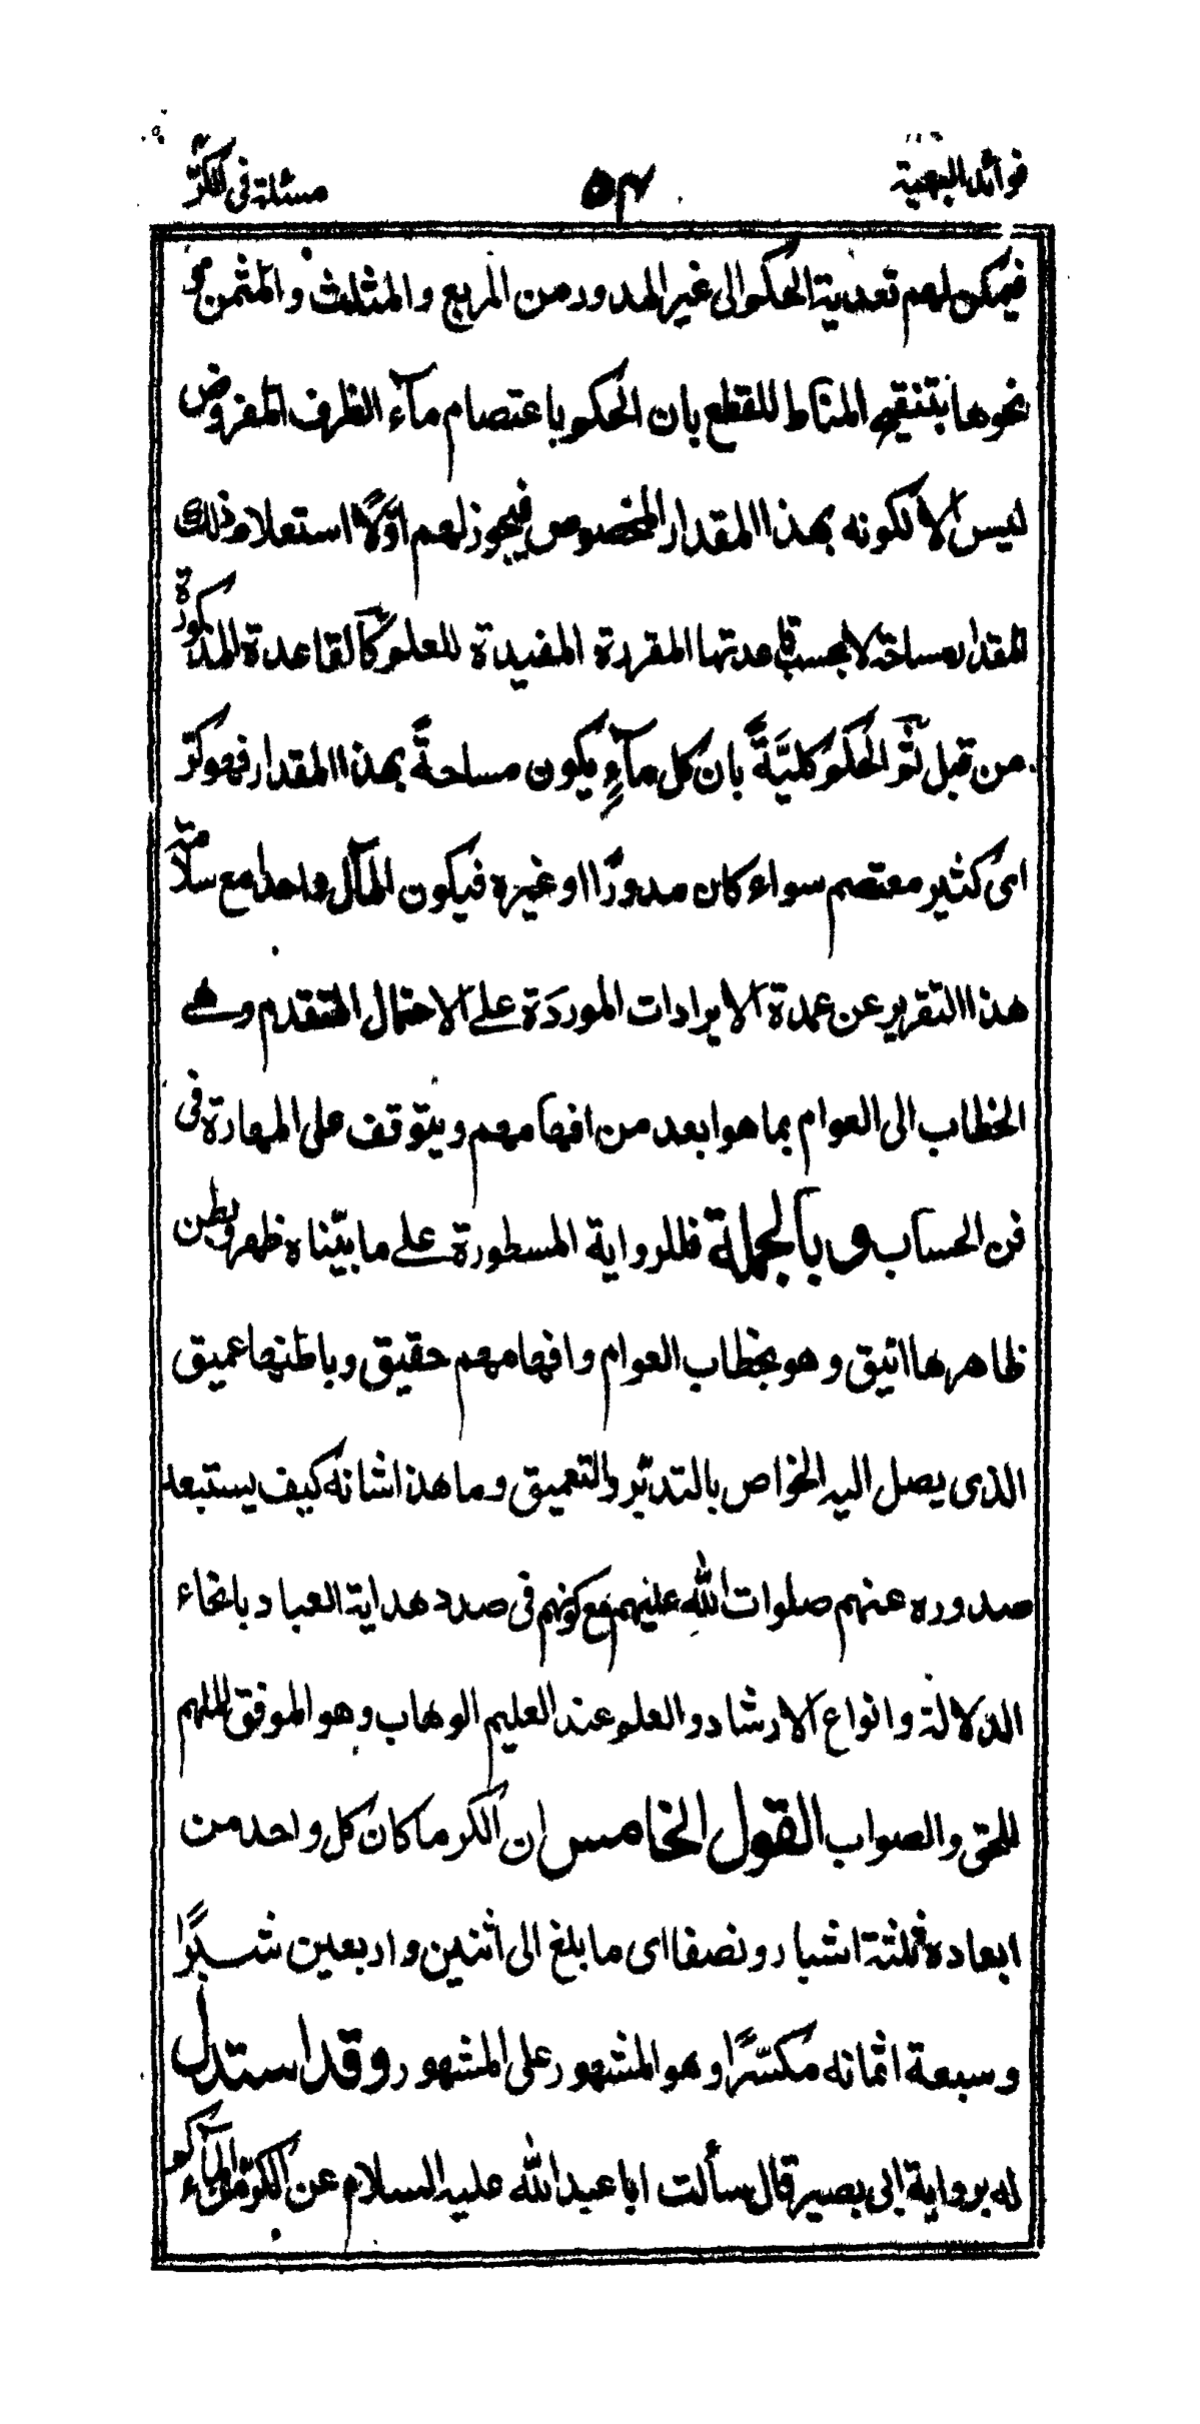 فوائد البهية ٥٤ مسئلة فى الكرّ
فيمكن لهم تعدية الحكم الى غير المدور من المربع والمثلث والمثمن و
نحوها بتنقيح المناط للقطع بان الحكم باعتصام مآء الظرف المفروض
ليس الا لكونه بهذا المقدار المخصوص فيجوز لهم اوّلًا استعلام ذلك
المقدار مساحة لا بحسب قاعدتها المقررة المفيدة للعلم كالقاعدة المذكورة
من قبل ثمّ الحكم كليّةً بان كل مآءٍ يكون مساحةً بهذا المقدار فهو كرّ
اى كثير معتصم سواء كان مدورًا او غيره فيكون المآل واحدا مع سلامة
هذا التقرير عن عمدة الايرادات الموردَة على الاحتمال المتقدم وهى
الخطاب الى العوام بما هو ابعد من افهامهم ويتوقف على المهارة فى
فن الحساب وبالجملة فللرواية المسطورة على ما بيّناه ظهر وبطن
ظاهرها انيق وهو بخطاب العوام وافهامهم حقيق وباطنها عميق
الذى يصل اليه الخواص بالتدبّر والتعميق وما هذا شانه كيف يستبعد
صدوره عنهم صلوات الله عليهم مع كونهم فى صدد هداية العباد بانحاء
الدلالة وانواع الارشاد والعلم عند العليم الوهاب وهو الموفق الملهم
للحق والصواب القول الخامس ان الكر ما كان كل واحد من
ابعاده ثلثة اشبار ونصفا اى ما بلغ الى اثنين واربعين شبرًا
وسبعة اثمانه مكسّرًا وهو المشهور على المشهور وقد استدل
له برواية ابى بصير قال سألت ابا عبد الله عليه السلام عن الكرّ من المآء كم